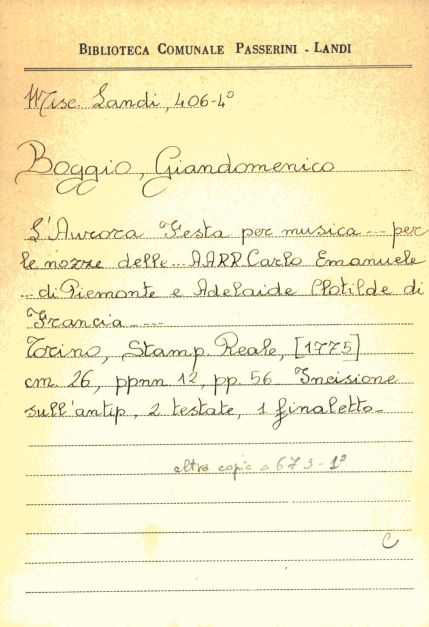 BIBLIOTECA COMUNALE PASSERINI - LANDI
Misc. Landi, 406-4º
Boggio, Giandomenico
L'Aurora Festa per musica --- per
le nozze delle... AA.RR. Carlo Emanuele
... di Piemonte e Adelaide Clotilde di
Francia ----
Torino, Stamp. Reale, [1775]
cm. 26, ppnn 12, pp. 56 Incisione
sull'antip, 2 testate, 1 finaletto-
altra copia a 673-1º
C